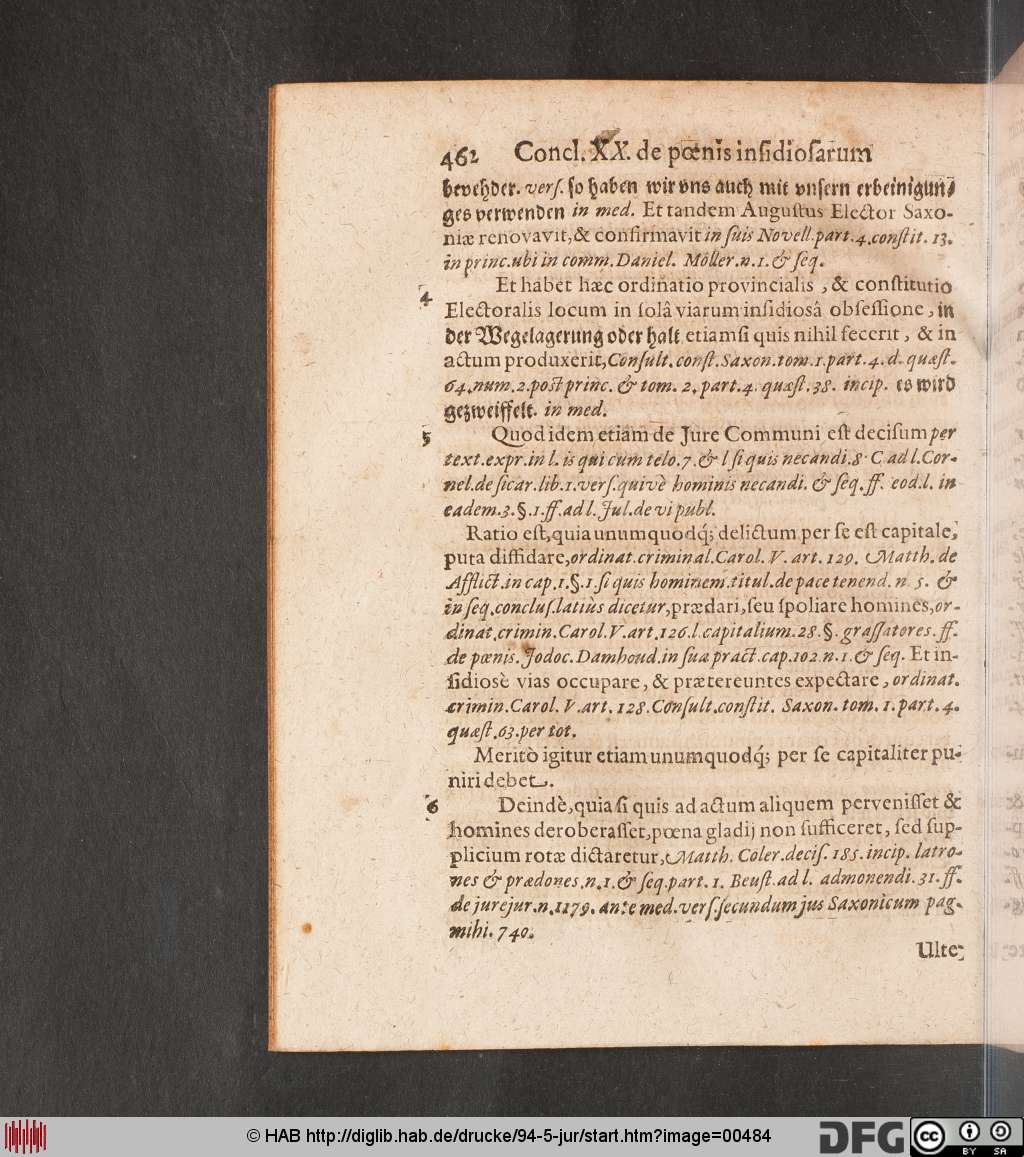 462 Concl. XX. de pœnis inſidioſarum
bevehder. verſ. ſo haben wir vns auch mit vnſern erbeinigun⸗
ges verwenden in med. Et tandem Auguſtus Elector Saxo-
niæ renovavit,& confirmavit in ſuis Novell.part.4.conſtit. 13.
in princ.ubi in comm. Daniel. Möller.n.1.& ſeq.
4 Et habet hæc ordinatio provincialis , & conſtitutio
Electoralis locum in ſolâ viarum inſidiosâ obſeſſione, in
der Wegelagerung oder halt etiamſi quis nihil fecerit, & in
actum produxerit, Conſult. conſt. Saxon. tom.1.part.4.d.quæſt.
64.num.2.poſt princ. & tom. 2.part.4.quæſt.38. incip. es wird
gezweiffelt. in med.
5 Quod idem etiam de Jure Communi eſt deciſum per
text.expr.in l. is qui cum telo.7.& l ſi quis necandi.8. C ad l.Cor-
nel.de ſicar.lib.1.verſ.quivè hominis necandi. & ſeq. ff. eod.l. in
eadem.3.§.1.ff.ad l. Jul.de vi publ.
Ratio eſt,quia unumquodq́; delictum per ſe eſt capitale,
puta diffidare,ordinat.criminal.Carol. V. art. 129. Matth. de
Afflict.in cap.1.§.1.ſi quis hominem.titul.de pace tenend. n. 5. &
in ſeq.concluſ.latiùs dicetur,prædari,ſeu ſpoliare homines,or-
dinat.crimin.Carol.V.art.126.l.capitalium.28.§. graſſatores.ff.
de pœnis. Jodoc. Damhoud.in ſua pract.cap.102.n.1.& ſeq. Et in-
ſidiosè vias occupare, & prætereuntes expectare, ordinat.
crimin.Carol. V.art. 128.Conſult.conſtit. Saxon. tom. 1.part.4.
quæſt.63.per tot.
Meritò igitur etiam unumquodq́; per ſe capitaliter pu-
niri debet.
6 Deindè,quia ſi quis ad actum aliquem perveniſſet &
homines deroberaſſet,pœna gladij non ſufficeret, ſed ſup-
plicium rotæ dictaretur,Matth. Coler.deciſ. 185.incip. latro-
nes & prædones.n.1.& ſeq.part. 1. Beuſt.ad l. admonendi.31.ff.
de jurejur.n.1179. ante med.verſ.ſecundum jus Saxonicum pag.
mihi. 740.
Ulte-
© HAB http://diglib.hab.de/drucke/94-5-jur/start.htm?image=00484
DFG cc BY SA